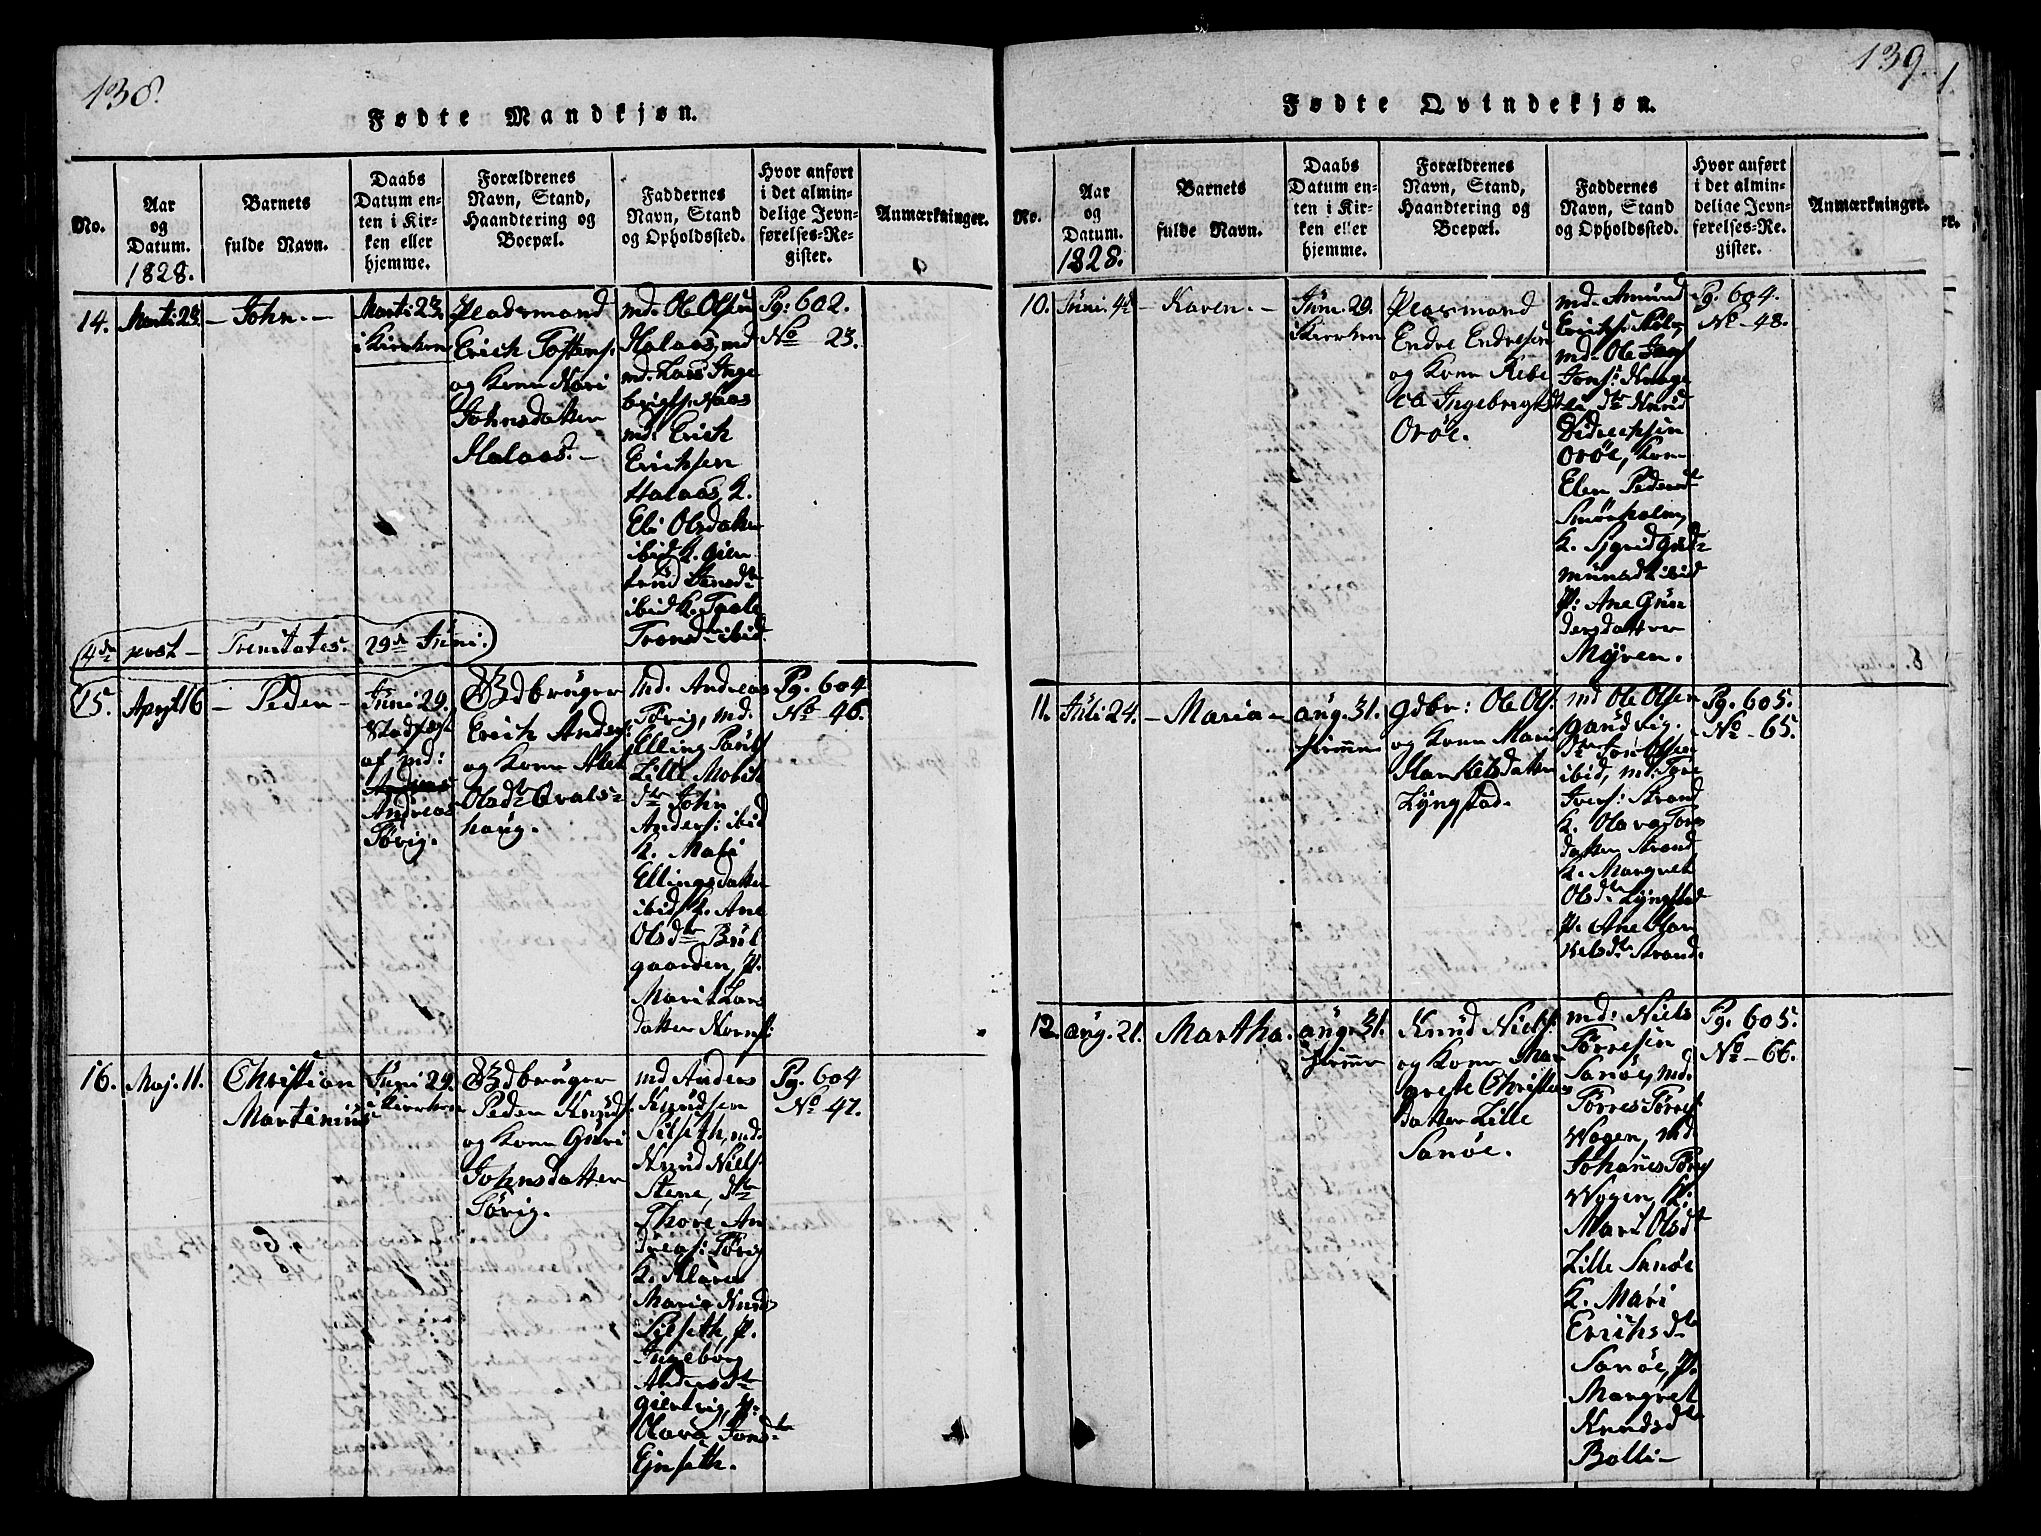 138.
Fødte Mandkjøn.
No.
Aar
og
Datum.
1828.
Barnets
fulde Navn.
Daabs
Datum en-
ten i Kir-
ken eller
hjemme.
Forældrenes
Navn, Stand,
Haandtering og
Boepæl.
Faddernes
Navn, Stand
og Opholdssted.
Hvor anført
i det almin-
delige Jevn-
førelses-Re-
gister.
Anmærkninger.
14.
Marti 23.
- John. -
Marti 23.
i Kirken
Pladsmand
Erich Tostens:
og Kone Mari
Johnsdatter
Halaas. -
md. Ole Olsen
Halaas, md
md. Lars Inge
brigts: Naas
md. Erich
Erichsen
Halaas, K.
Eli Olsdatter
ibid K. Gien
trud
ibid K.
ibid
Pg: 602.
No 23.
4de post - Trinitates. 29de Juni.
15.
April 16
- Peder -
Juni 29.
Stadfæst
af md:
Andreas
Tørig.
Gdbruger
Erich Anders:
og Kone
Olsdtr Hvals-
houg.
md. Andreas
Tørig, md.
Elling Pauls
Lille
dtr John
Anders: ibid
K. Mali
Ellingsdatter
ibid K. Ane
Olsdtr Bul
gaarden, P.
Marit Lars
datter
Pg: 604
No - 46.
16.
Maj. 11.
Christian
Martinius
Juni 29.
i Kirken
Gdbruger
Peder Knuds:
og Kone Guri
Johnsdatter
Tørig.
md Anders
Knudsen
Silseth, md.
Knud Niels:
Stene, dtr
Thore An
dreas: Tørig
K.
Maria Knuds
Silseth, P.
Ingeborg
Andersdtr
P:
Olava Jonsdtr
Ejsseth.
Pg. 604
No - 47.
139.
Fødte Qvindekjøn.
No.
Aar
og
Datum.
1828.
Barnets
fulde Navn.
Daabs
Datum en-
ten i Kir-
ken eller
hjemme.
Forældrenes
Navn, Stand,
Haandtering og
Boepæl.
Faddernes
Navn, Stand
og Opholdssted.
Hvor anført
i det almin-
delige Jevn-
førelses-Re-
gister.
Anmærkninger.
10.
- Karen. -
Juni 29.
i Kirken
Pladsmand
Endre Endresen
og Kone Rebe
ca Ingebrigtsdt
Orøe.
md. Amund
Erichs:
md. Ole
Jons:
dtr Knud
Didrichsen
Orøe, Kone
Elen Pedersdt
K. Sigrid
ibid
P: Ane Gun
dersdatter
Myren.
Pg. 604.
No - 48.
11.
Juli 24.
- Maria -
Aug. 31.
hjemme
Gdbr: Ole Ols.
og Kone Mari
datter
Lyngstad.
md Ole Olsen
ibid, md: Tore
Ivers: Strand
K. Olava Tors
datter Strand
K. Margret
Olsdtr Lyngstad
P. Ane
Strand.
Pg. 605.
No - 65.
12.
Aug. 21.
Martha.
Aug. 31.
hjemme
Knud Niels:
og Kone Mar
grete Christens
datter Lille
Sanøe.
md: Niels
Torresen
Sanøe, md.
Torres Torres
Wogen, md
Johanes
Wogen, K:
Mari Olsdt
Lille Sanøe
K. Mari
Erichsdtr
Sanøe, P.
Margret
Knudsdtr
Bolli -
Pg: 605.
No - 66.